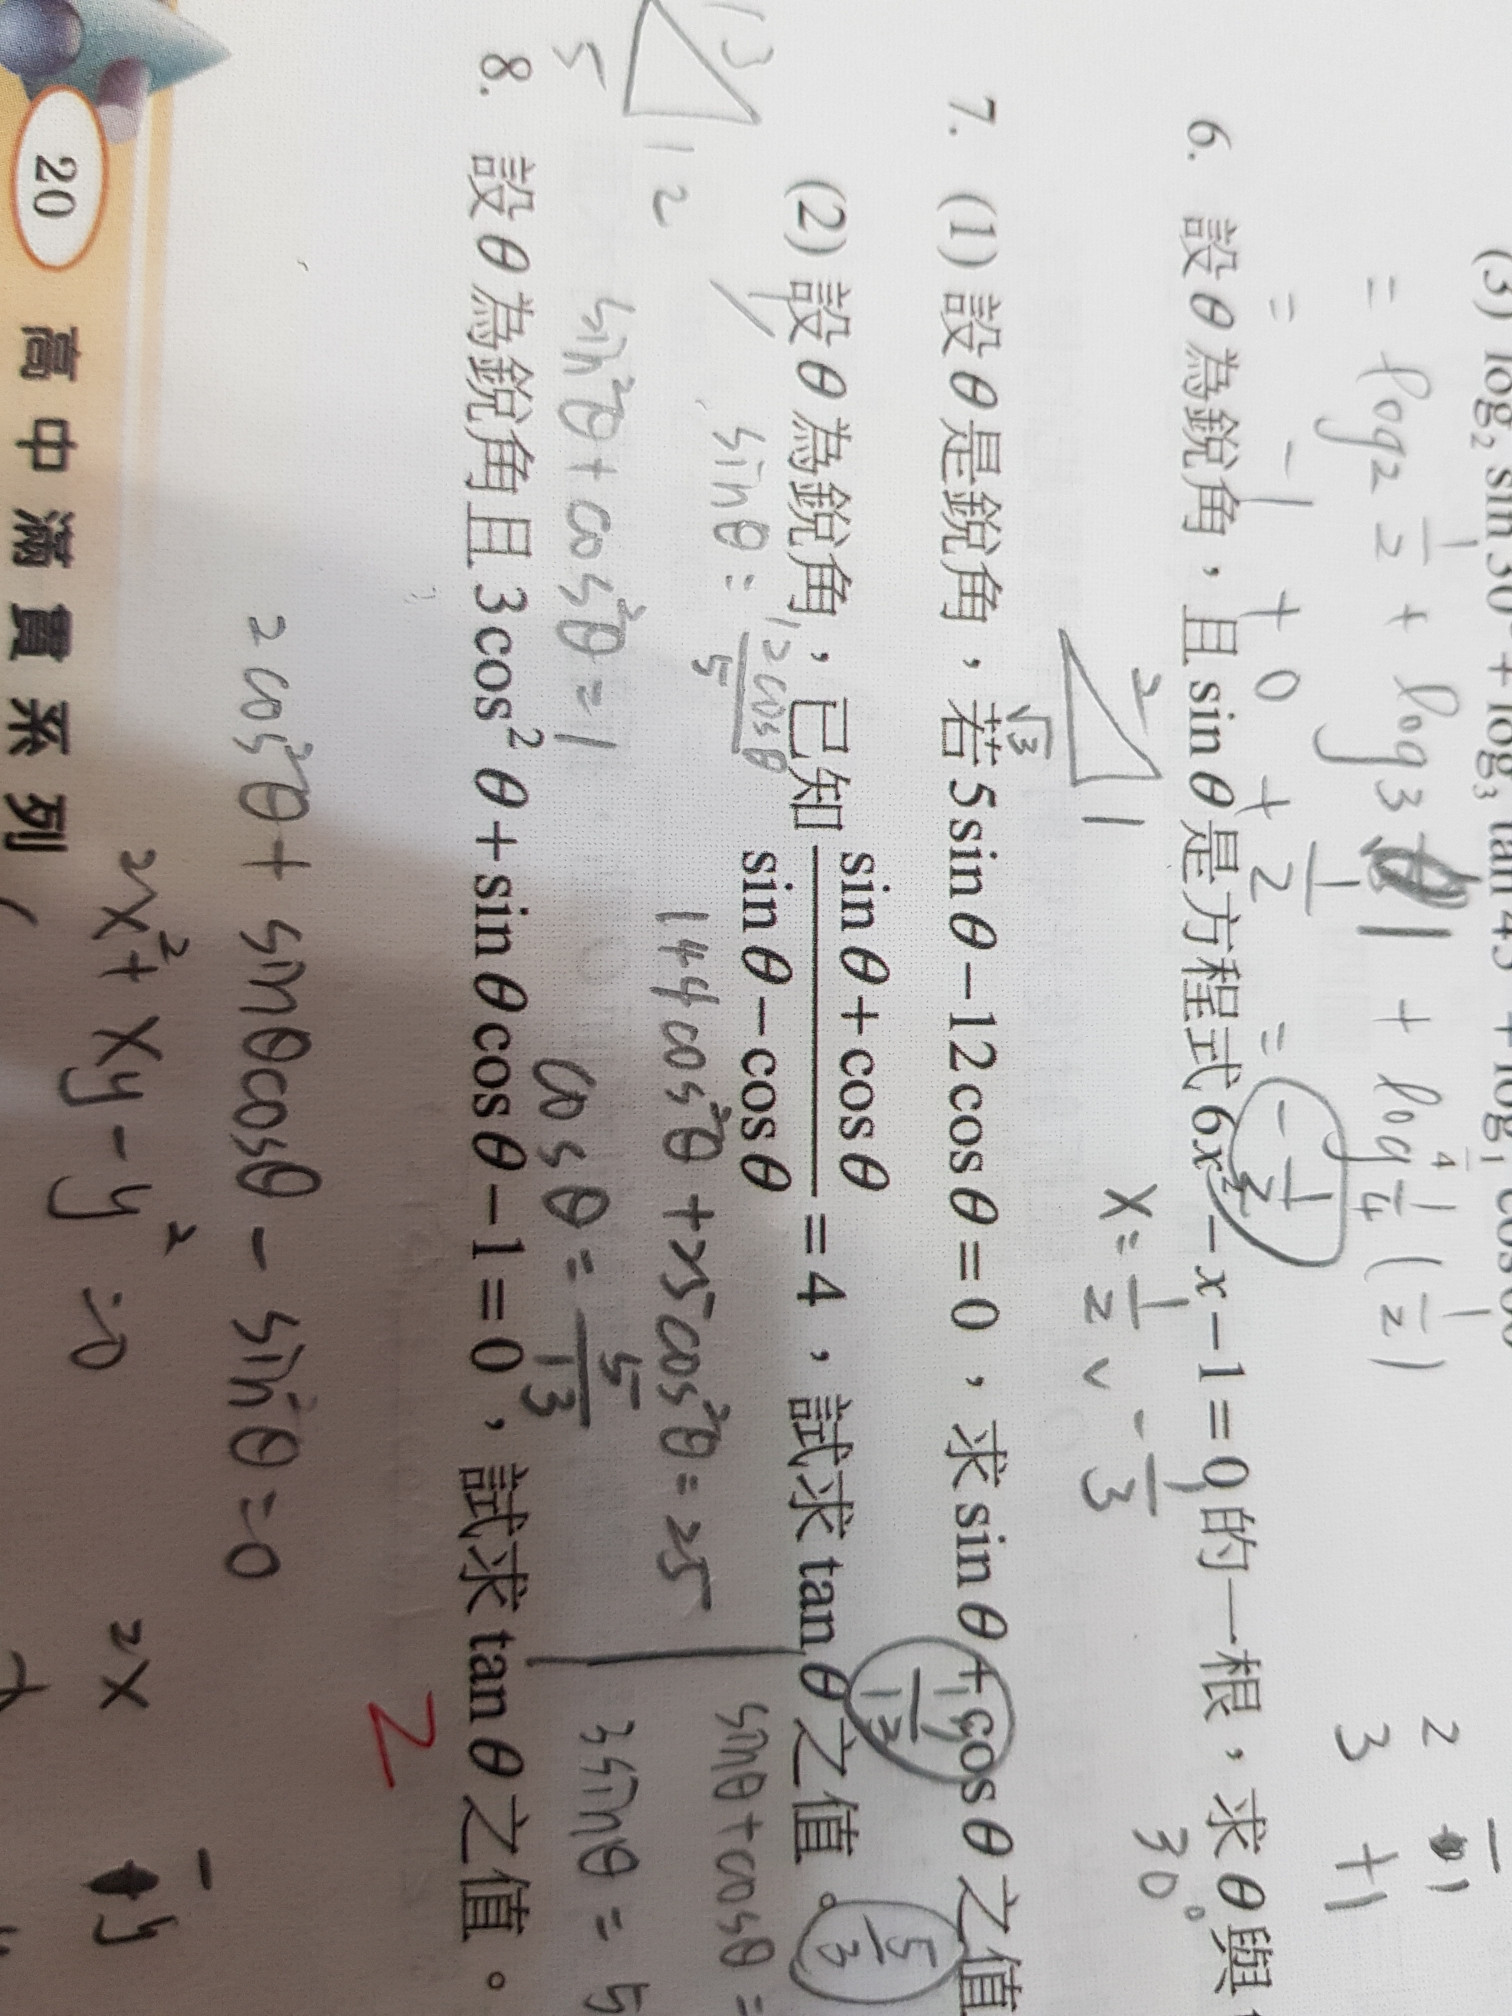 (3) log₂ sin 30° + log₃ tan 45° + log
= log₂ 1/2 + log₃ 1 + log 1/4 (1/2)
= -1 + 0 + 1/2 = -1/2
2 -1
3 +1
6. 設θ為銳角，且 sin θ 是方程式 6x² - x - 1 = 0 的一根，求θ與
2 1 √3
x = 1/2 ∨ -1/3
30°
7. (1) 設θ是銳角，若 5 sin θ - 12 cos θ = 0，求 sin θ + cos θ 之值
(2) 設θ為銳角，已知 (sin θ + cos θ)/(sin θ - cos θ) = 4，試求 tan θ 之值。
5/3
13 12 5
sinθ = 12cosθ/5
sinθ + cosθ =
144cos²θ + 25cos²θ = 25
sin²θ + cos²θ = 1
cosθ = 5/13
3sinθ = 5
8. 設θ為銳角且 3 cos² θ + sin θ cos θ - 1 = 0，試求 tan θ 之值。
2
2cos²θ + sinθcosθ - sin²θ = 0
2x² + xy - y² = 0
2x -y
20 高中滿貫系列